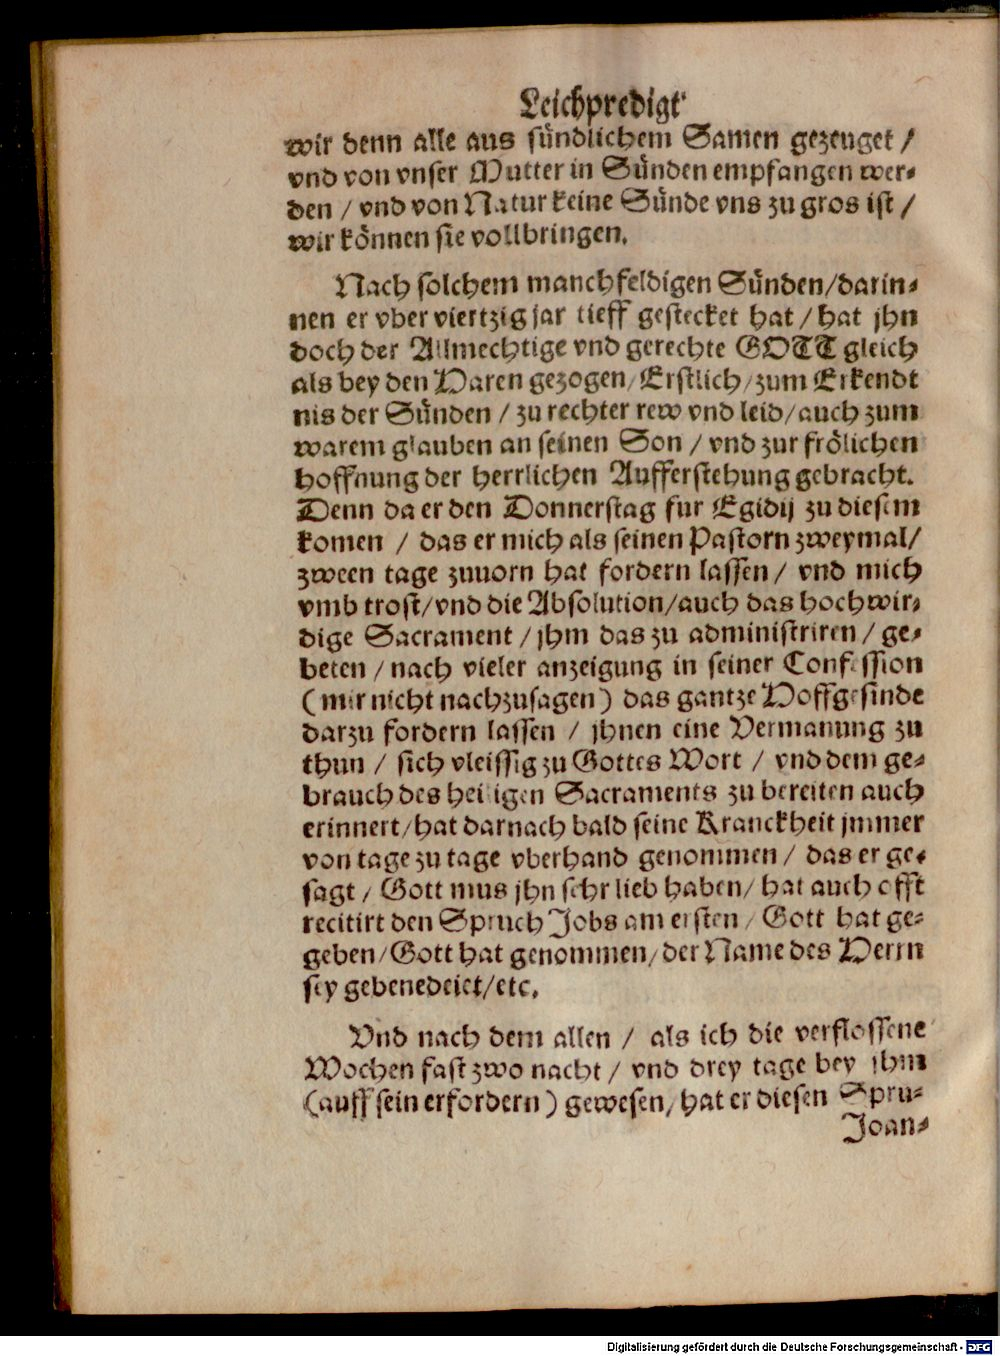 Leichpredigt
wir denn alle aus sündlichem Samen gezeuget /
vnd von vnser Mutter in Sünden empfangen wer-
den / vnd von Natur keine Sünde vns zu gros ist /
wir können sie vollbringen.
Nach solchem manchfeldigen Sünden/darin-
nen er vber viertzig jar tieff gestecket hat / hat jhn
doch der Allmechtige vnd gerechte GOTT gleich
als bey den Haren gezogen/Erstlich/zum Erkendt
nis der Sünden / zu rechter rew vnd leid/auch zum
warem glauben an seinen Son / vnd zur frölichen
hoffnung der herrlichen Aufferstehung gebracht.
Denn da er den Donnerstag für Egidij zu diesem
komen / das er mich als seinen Pastorn zweymal/
zween tage zuuorn hat fordern lassen / vnd mich
vmb trost/vnd die Absolution/auch das hochwir-
dige Sacrament / jhm das zu administriren / ge-
beten / nach vieler anzeigung in seiner Confession
(mir nicht nachzusagen) das gantze Hoffgesinde
darzu fordern lassen / jhnen eine Vermanung zu
thun / sich vleissig zu Gottes Wort / vnd dem ge-
brauch des heiligen Sacraments zu bereiten auch
erinnert/hat darnach bald seine Kranckheit jmmer
von tage zu tage vberhand genommen / das er ge-
sagt / Gott mus jhn sehr lieb haben/ hat auch offt
recitirt den Spruch Jobs am ersten / Gott hat ge-
geben/Gott hat genommen/der Name des Herrn
sey gebenedeiet/etc.
Vnd nach dem allen / als ich die verflossene
Wochen fast zwo nacht / vnd drey tage bey jhm
(auff sein erfordern) gewesen/hat er diesen Spru-
Joan-
Digitalisierung gefördert durch die Deutsche Forschungsgemeinschaft - DFG